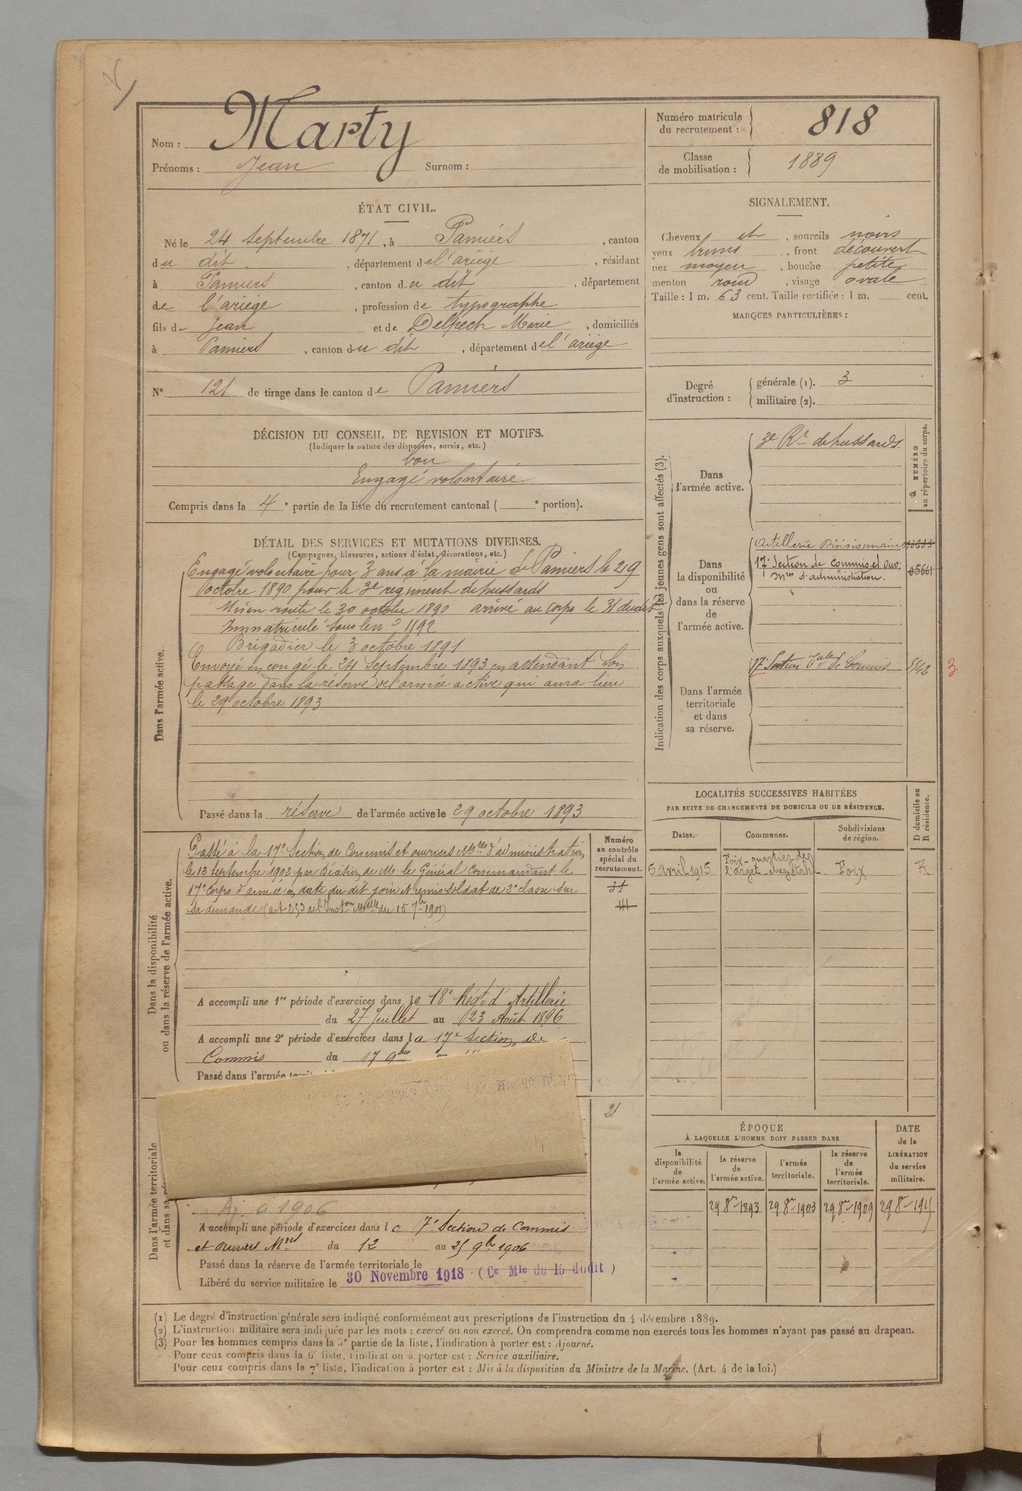 Nom : Marty
Prénoms : Jean Surnom :
Numéro matricule du recrutement : 818
Classe de mobilisation : 1889
ÉTAT CIVIL.
Né le 24 Septembre 1871, à Pamiers, canton
du dit, département de l'ariège, résidant
à Pamiers, canton du dit, département
de l'ariège, profession de typographe
fils de Jean et de Delpech Marie, domiciliés
à Pamiers, canton du dit, département de l'ariège
N° 121 de tirage dans le canton de Pamiers
SIGNALEMENT.
Cheveux et, sourcils noirs
yeux bruns, front découvert
nez moyen, bouche petite
menton rond, visage ovale
Taille : 1 m. 63 cent. Taille rectifiée : 1 m. cent.
MARQUES PARTICULIÈRES :
Degré d'instruction : générale (1). 3
militaire (2).
DÉCISION DU CONSEIL DE REVISION ET MOTIFS.
(Indiquer la nature des dispenses, sursis, etc.)
bon
Engagé volontaire
Compris dans la 4e partie de la liste du recrutement cantonal ( e portion).
DÉTAIL DES SERVICES ET MUTATIONS DIVERSES.
(Campagnes, blessures, actions d'éclat, décorations, etc.)
Dans l'armée active.
Engagé volontaire pour 3 ans à la mairie de Pamiers le 29
octobre 1890 pour le 3e régiment de hussards
Mis en route le 30 octobre 1890 arrivé au corps le 31 dudit
Immatriculé sous le n° 1192
Brigadier le 3 octobre 1891
Envoyé en congé le 24 Septembre 1893 en attendant son
passage dans la réserve de l'armée active qui aura lieu
le 29 octobre 1893
Passé dans la réserve de l'armée active le 29 octobre 1893
Indication des corps auxquels les jeunes gens sont affectés (3).
NUMÉRO au répertoire du corps.
Dans l'armée active.
3e Rt de hussards
Dans la disponibilité ou dans la réserve de l'armée active.
Artillerie Divisionnaire
17e Section de Commis et Ouv.
Mres d'administration.
Dans l'armée territoriale et dans sa réserve.
17e Section tale de Commis 5542 3
Dans la disponibilité ou dans la réserve de l'armée active.
Numéro au contrôle spécial du recrutement.
Passé à la 17e Section de Commis et ouvriers Mres d'administration
le 13 septembre 1902 par décision de Mr le Général Commandant le
17e Corps d'armée en date du dit jour Remis soldat de 2e classe sur
sa demande
A accompli une 1re période d'exercices dans le 18e Régt d'Artillerie
du 27 Juillet au 23 Août 1896
A accompli une 2e période d'exercices dans la 17e Section de
Commis du 17 9bre
Passé dans l'armée
LOCALITÉS SUCCESSIVES HABITÉES
PAR SUITE DE CHANGEMENTS DE DOMICILE OU DE RÉSIDENCE.
Dates. Communes. Subdivisions de région. D domicile ou R résidence.
5 avril 1915 Foix - quartier de l'arget - Foix R
Dans l'armée territoriale et dans sa
21
1906
A accompli une période d'exercices dans la 7e Section de Commis
et ouvriers Mres du 12 au 25 9b 1906
Passé dans la réserve de l'armée territoriale le
Libéré du service militaire le 30 Novembre 1918 (Ce Mle du 15 dudit)
ÉPOQUE
À LAQUELLE L'HOMME DOIT PASSER DANS
DATE de la LIBÉRATION du service militaire.
la disponibilité de l'armée active. la réserve de l'armée active. l'armée territoriale. la réserve de l'armée territoriale.
29 8re 1893 29 8re 1903 29 8re 1909
(1) Le degré d'instruction générale sera indiqué conformément aux prescriptions de l'instruction du 4 décembre 1889.
(2) L'instruction militaire sera indiquée par les mots : exercé ou non exercé. On comprendra comme non exercés tous les hommes n'ayant pas passé au drapeau.
(3) Pour les hommes compris dans la 5e partie de la liste, l'indication à porter est : Ajourné.
Pour ceux compris dans la 6e liste, l'indication à porter est : Service auxiliaire.
Pour ceux compris dans la 7e liste, l'indication à porter est : Mis à la disposition du Ministre de la Marine. (Art. 4 de la loi.)